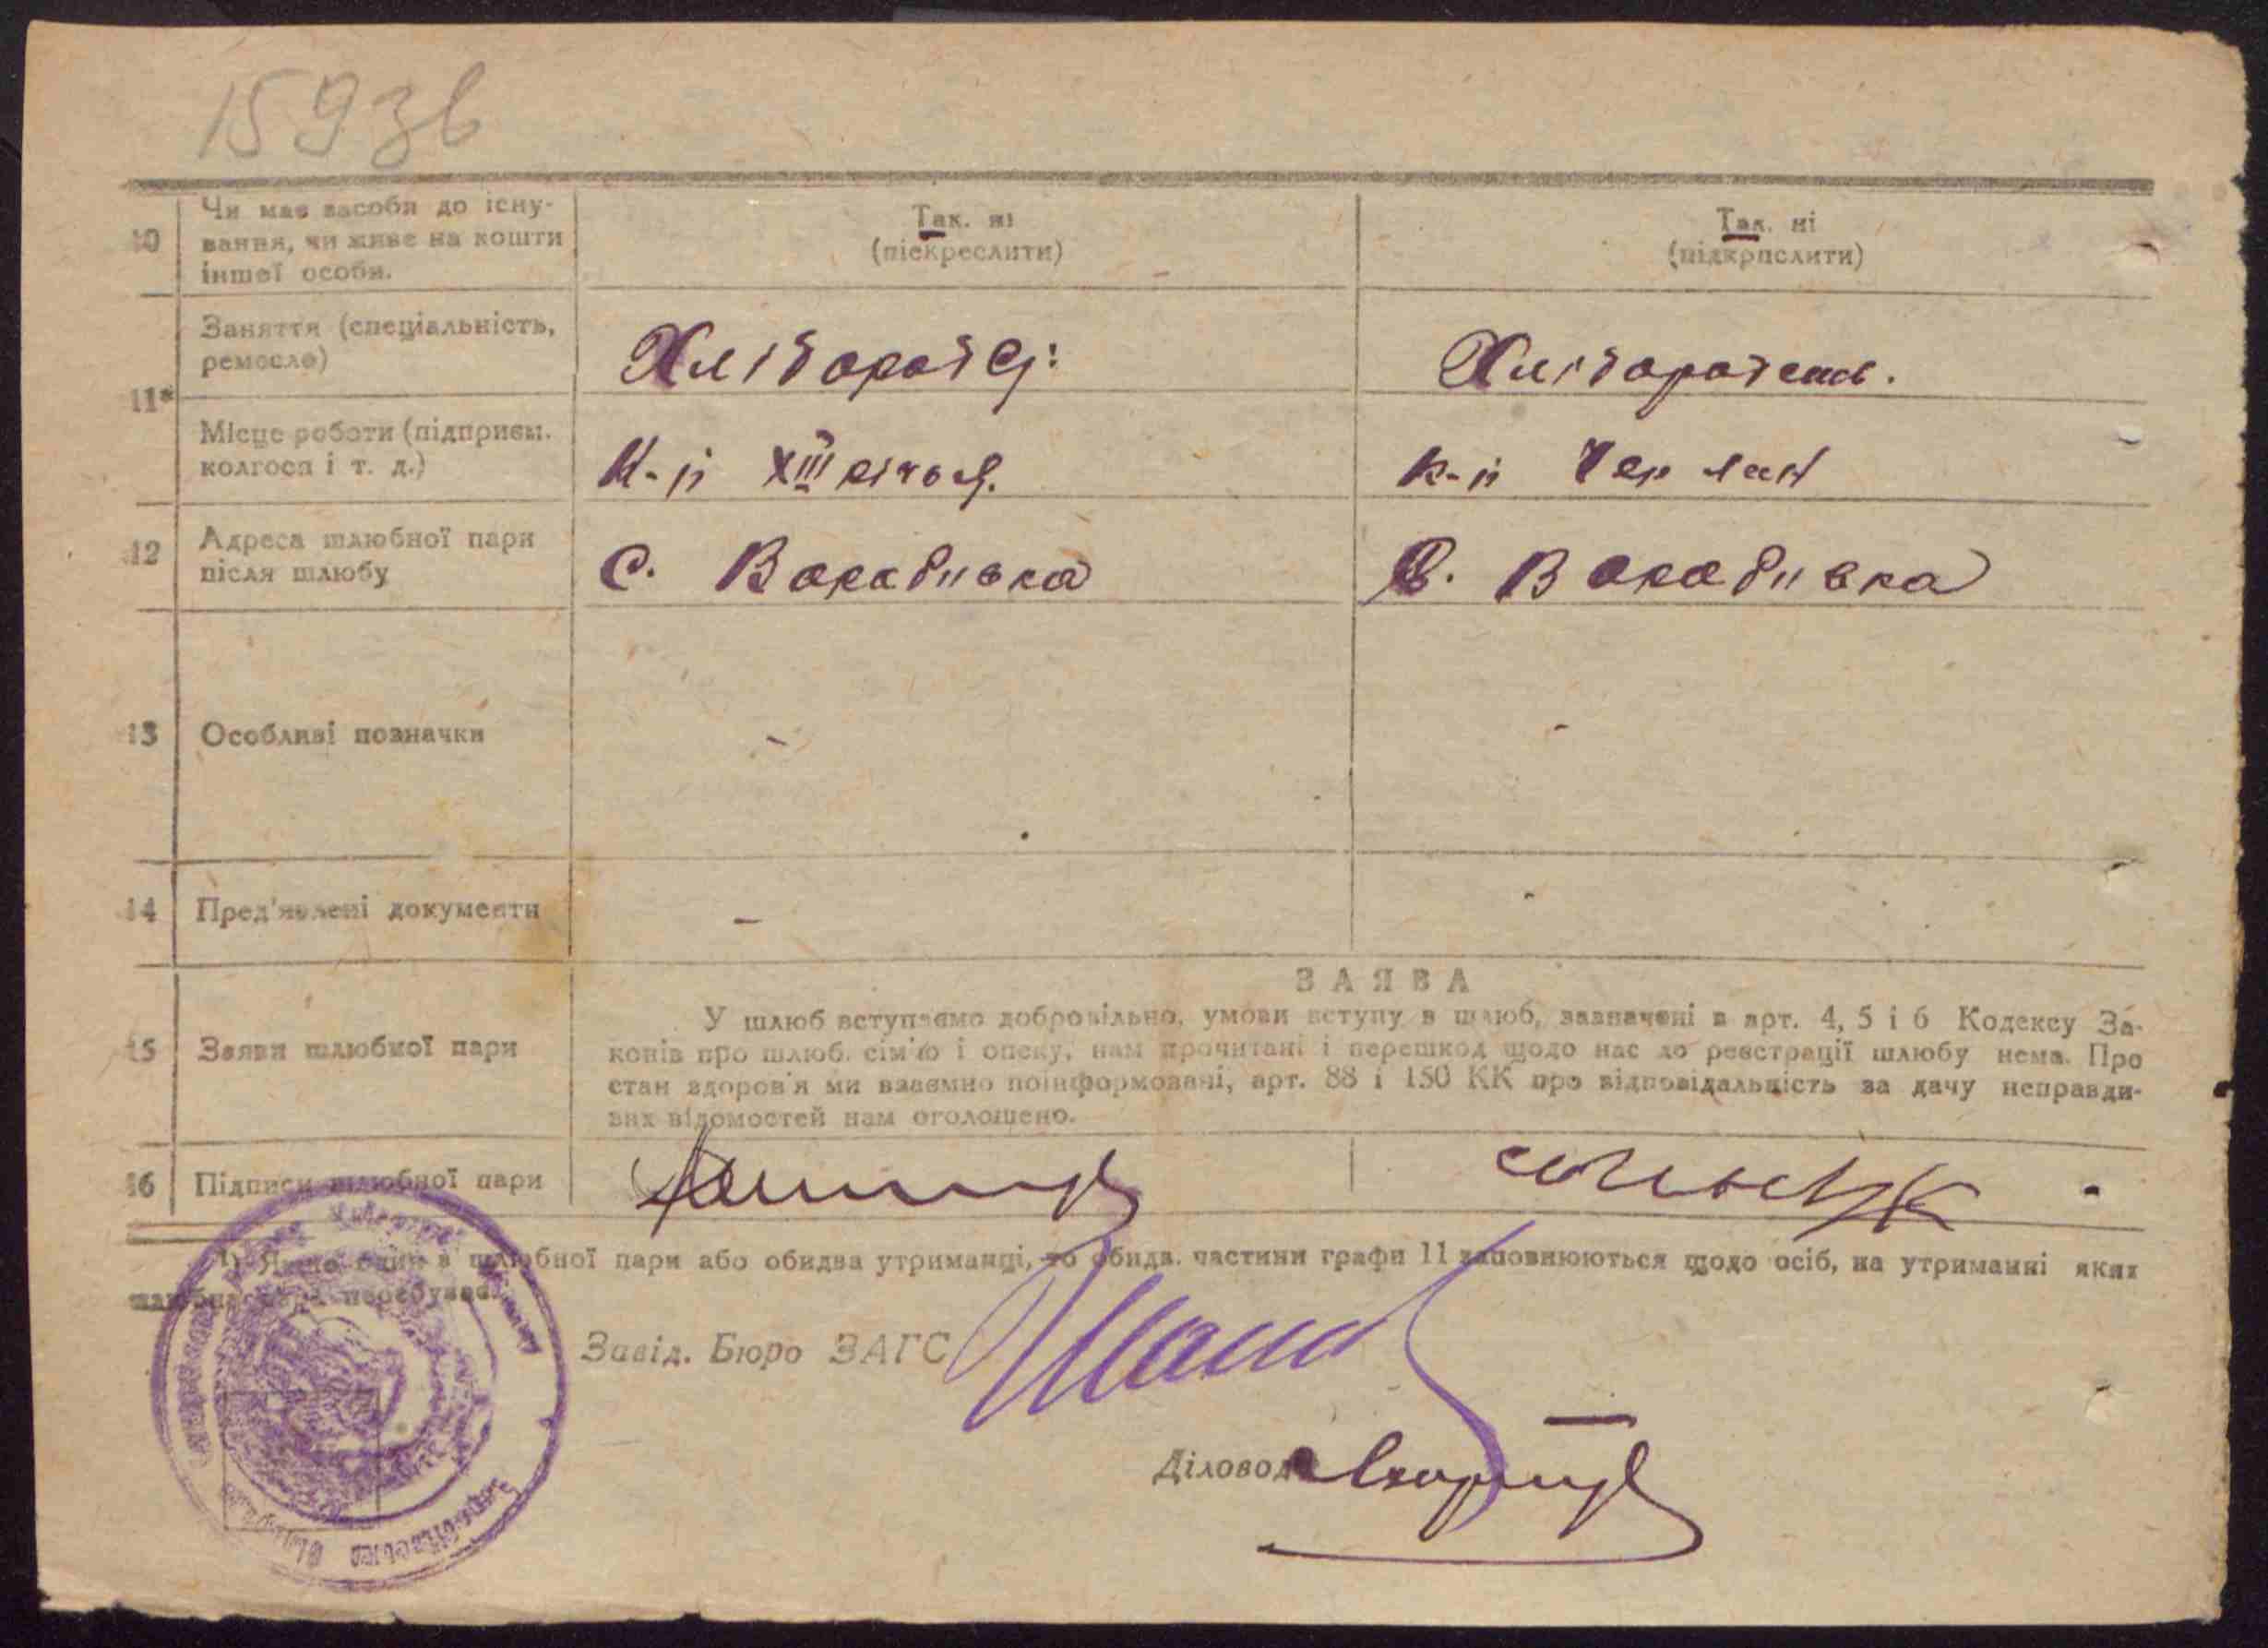 159зв
10 Чи має засоби до існу- Так. ні Так. ні
вання, чи живе на кошти (піскреслити) (підкрислити)
іншої особи.
Заняття (спеціальність, Хлібороб Хлібороб
ремесло)
11*
Місце роботи (підприєм. К-п XIII річ. К-п
колгосп і т. д.)
12 Адреса шлюбної пари С. Воробіївка С. Воробіївка
після шлюбу
13 Особливі позначки - -
14 Пред'явлені документи - -
ЗАЯВА
У шлюб вступаємо добровільно, умови вступу в шлюб, зазначені в арт. 4, 5 і 6 Кодексу За-
15 Заяви шлюбної пари
конів про шлюб. сім'ю і опеку, нам прочитані і перешкод щодо нас до реєстрації шлюбу нема. Про
стан здоров'я ми взаємно поінформовані, арт. 88 і 150 КК про відповідальність за дачу неправди-
вих відомостей нам оголошено.
16 Підписи шлюбної пари
1) Якщо один з шлюбної пари або обидва утриманці, то обидв. частини графи 11 заповнюються щодо осіб, на утриманні яких
шлюбна пара перебуває.
Завід. Бюро ЗАГС
Діловод